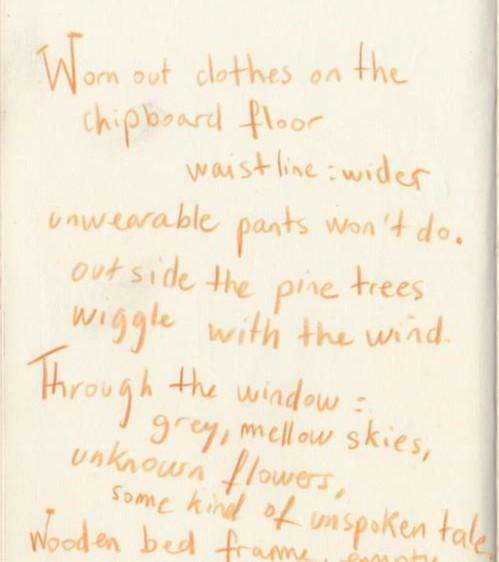 Worn out clothes on the
chipboard floor
waistline : wider
unwearable pants won't do.
outside the pine trees
wiggle with the wind.
Through the window :
grey, mellow skies,
unknown flowers,
some kind of unspoken tale
Wooden bed frame, empty